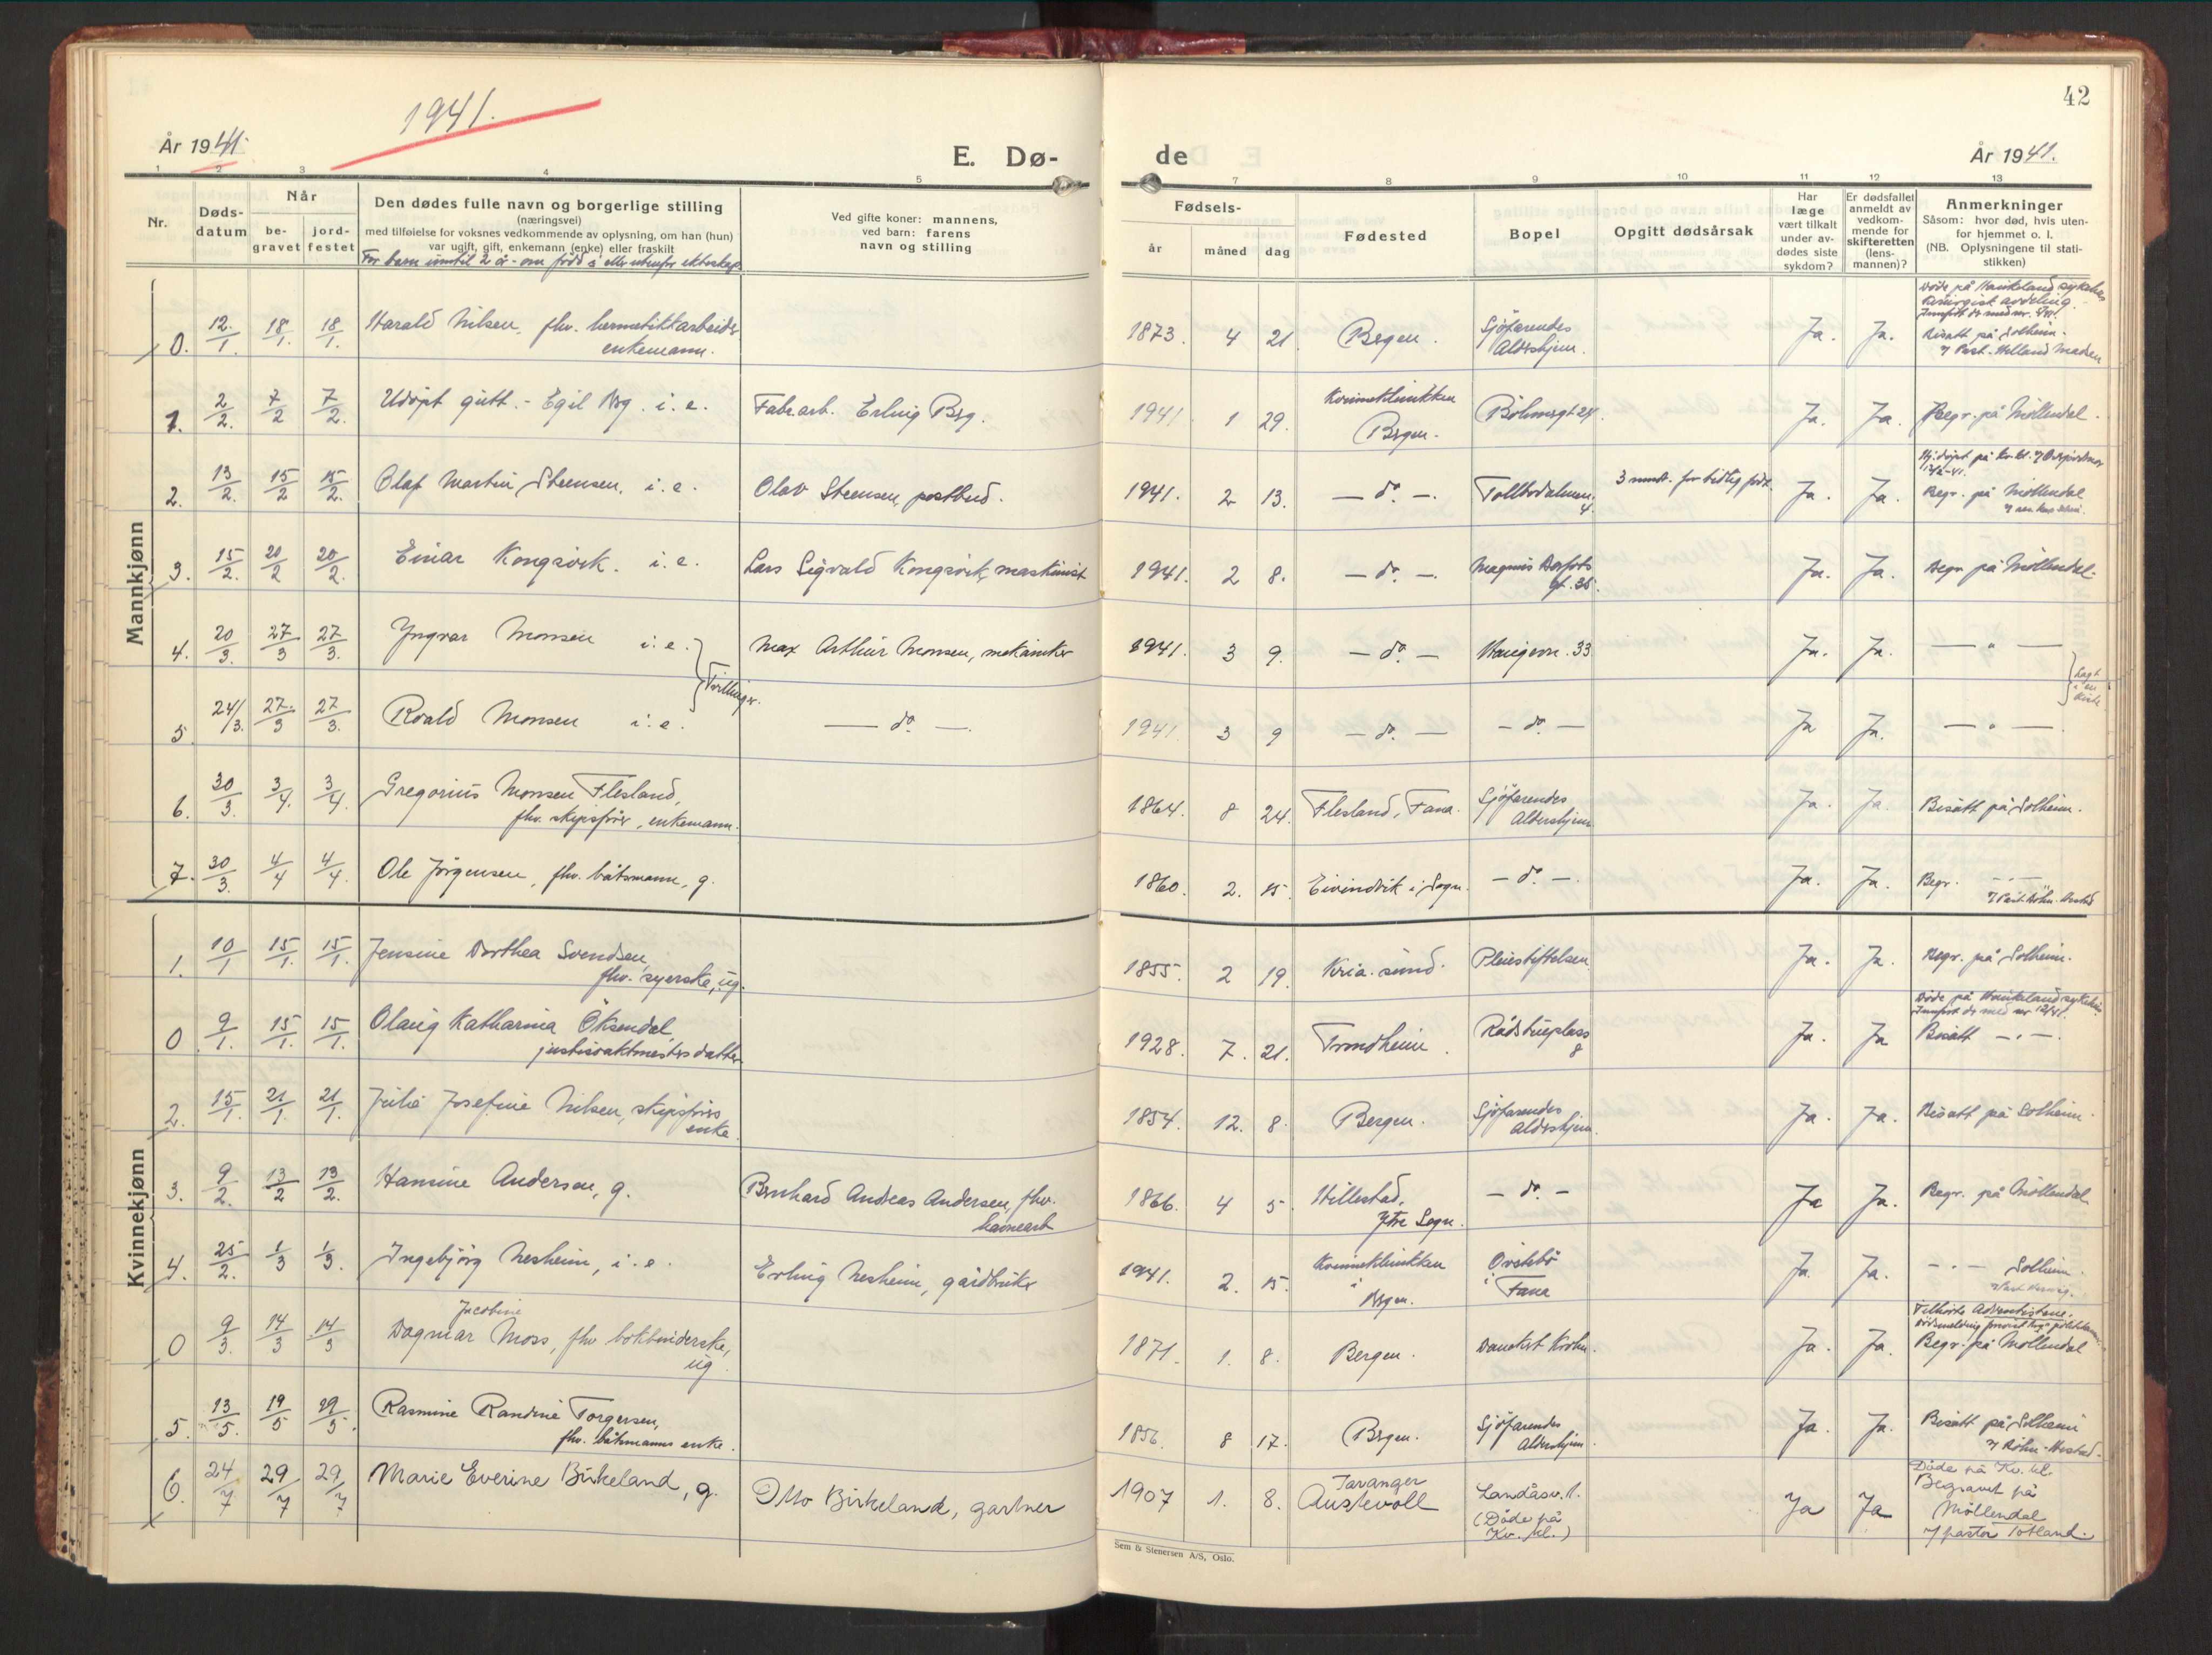 42
1941.
År 1941.
E. Dø-
de
År 1941.
1 2 3 4 5 7 8 9 10 11 12 13
Nr.
Døds-
datum
Når
be-
gravet
jord-
festet
Den dødes fulle navn og borgerlige stilling
(næringsvei)
med tilføielse for voksnes vedkommende av oplysning, om han (hun)
var ugift, gift, enkemann (enke) eller fraskilt
For barn inntil 2 år - om född i eller utenfor ekteskap
Ved gifte koner: mannens,
ved barn: farens
navn og stilling
Fødsels-
år
måned
dag
Fødested
Bopel
Opgitt dødsårsak
Har
læge
vært tilkalt
under av-
dødes siste
sykdom?
Er dødsfallet
anmeldt av
vedkom-
mende for
skifteretten
(lens-
mannen)?
Anmerkninger
Såsom: hvor død, hvis uten-
for hjemmet o. l.
(NB. Oplysningene til stati-
stikken)
Mannkjønn
0. 12/1. 18/1. 18/1. Harald Nilsen, fhv. hermetikkarbeider
enkemann.
1873. 4 21. Bergen. Sjöfarendes
Aldershjem. Ja. Ja.
Döde på Haukeland sykehus
kirurgisk avdeling.
Bisatt på Solheim.
v/ Past. Helland Madsen
1. 2/2. 7/2 7/2. Udöpt gutt. - Egil Berg. i. e. Fabr.arb. Erling Berg.
1941. 1 29. Kvinneklinikken
Bergen. Böhmergt 24. Ja. Ja. Begr. på Möllendal.
2. 13/2. 15/2 15/2. Olaf Martin Steensen, i. e. Olav Steensen, postbud.
1941. 2 13. - do. -. Tollbodalmen.
4. 3 mndr. for tidlig född. Ja. Ja.
Begr. på Möllendal
3. 15/2. 20/2 20/2. Einar Kongsvik. i. e. Lars Sigvald Kongsvik, maskinist
1941. 2 8. - do. -. Magnus Barfots
gt. 35. Ja. Ja. Begr på Möllendal.
4. 20/3. 27/3 27/3. Yngvar Monsen i. e. Max Arthur Monsen, mekaniker
1941. 3 9. - do. - Haugevn. 33 Ja. Ja. — " —
Tvillinger.
Lagt
i en
kiste
5. 24/3. 27/3 27/3. Roald Monsen i. e. — do. —.
1941. 3 9 - do. - - do. - Ja Ja. — " —.
6. 30/3. 3/4. 3/4. Gregorius Monsen Flesland,
fhv. skipsförer, enkemann.
1864. 8 24. Flesland, Fana. Sjöfarendes
Aldershjem Ja. Ja. Bisatt på Solheim.
7. 30/3. 4/4 4/4. Ole Jörgensen, fhv. båtsmann, g.
1860. 2. 15. Eivindvik i Sogn. - do. -. Ja. Ja. Begr. - " -
Kvinnekjønn
1. 10/1 15/1. 15/1. Jensine Dorthea Svendsen,
fhv. syerske, ug.
1855. 2 19. Kria.sund. Pleiestiftelsen. Ja. Ja. Begr. på Solheim.
0 9/1. 15/1. 15/1. Olaug Katharina Öksendal,
justisvaktmesters datter
1928. 7. 21. Trondheim. Rådstueplass
8 Ja. Ja
Döde på Haukeland sykehus
Innfört der med nr. 12/41.
Bisatt - " -.
2. 15/1. 21/1 21/1. Julie Josefine Nilsen, skipsförers
enke.
1854. 12. 8. Bergen. Sjöfarendes
aldershjem. Ja. Ja. Bisatt på Solheim.
3. 9/2. 13/2 13/2. Hansine Andersen, g. Bernhard Andreas Andersen, fhv.
havnearb
1866. 4 5. Hillestad,
Ytre Sogn. - do. - Ja Ja. Begr. på Möllendal
4. 25/2. 1/3 1/3. Ingebjörg Nesheim, i. e. Erling Nesheim, gårdbruker
1941. 2. 15. Kvinneklinikken
i
Bergen. Övstebö
i Fana Ja. Ja. - " - Solheim.
0 9/3. 14/3 14/3 Jacobine
Dagmar Moss, fhv bokbinderske,
ug.
1871. 1. 8. Bergen. Danckert Krohn. Ja. Ja.
Tilhörte Adventistene.
Begr. på Möllendal
5. 13/5. 19/5 19/5. Rasmine Randine Torgersen,
fhv. båtsmanns enke.
1856. 8 17. Bergen. Sjöfarendes
Aldershjem. Ja. Ja. Bisatt på Solheim
6. 24/7 29/7 29/7 Marie Everine Birkeland, g. Otto Birkeland, gartner
1907 1. 8. Tavanger
Austevoll Landåsv. 1.
(Döde på
Kv. kl.) Ja Ja
Döde på Kv. kl.
Begravet på
Möllendal
v/ pastor Totland.
Sem & Stenersen A/S, Oslo.